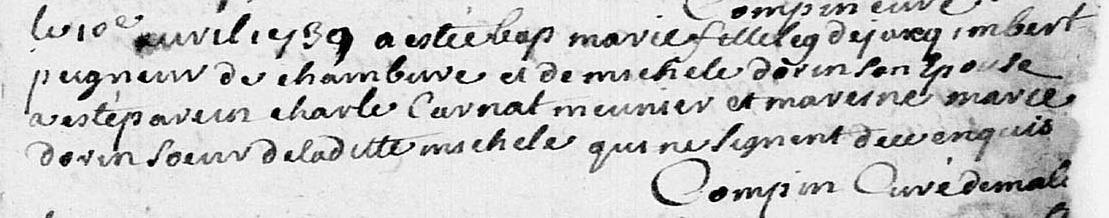 Compin curé
le 10e avril 1739 a estée bap marie fille leg de jacq imbert
peigneur de chambure et de michele dorin son Epouse
a esté parein charle Carnat meunier et mareine marie
dorin soeur de la ditte michele qui ne signent de ce enquis
Compin Curé de